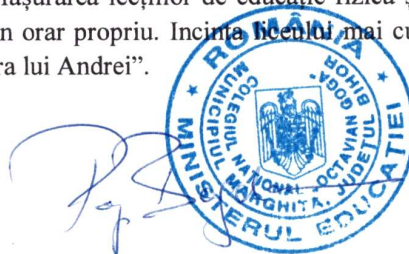 așurarea lecțiilor de educație fizică ș
n orar propriu. Incinta liceului mai cu
ra lui Andrei”.
ROMÂNIA
MINISTERUL EDUCAȚIEI
COLEGIUL NAȚIONAL „OCTAVIAN GOGA”
MUNICIPIUL MARGHITA, JUDEȚUL BIHOR